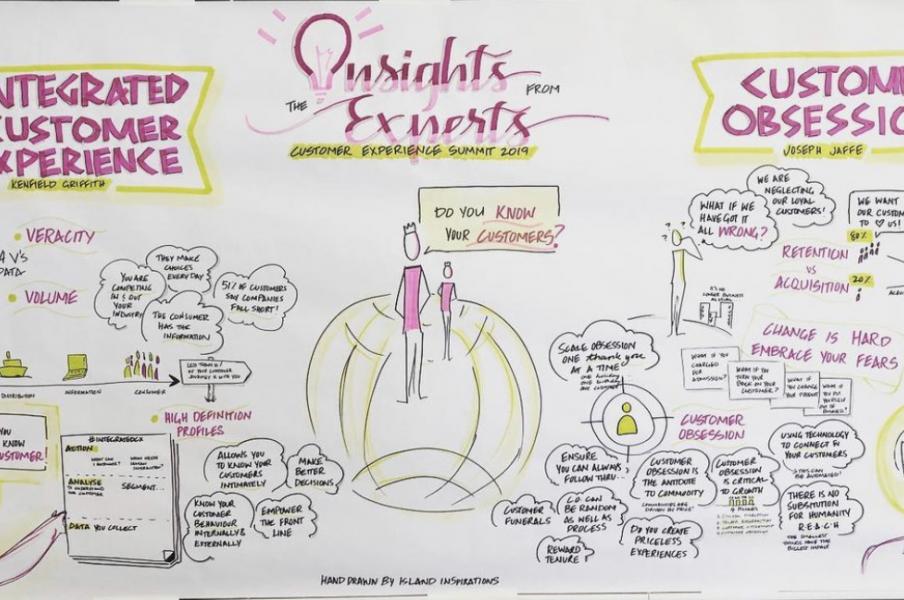 INTEGRATED
CUSTOMER
EXPERIENCE
KENFIELD GRIFFITH
VERACITY
4 V'S
DATA
VOLUME
YOU ARE
COMPETING
IN & OUT
YOUR
INDUSTRY
THEY MAKE
CHOICES
EVERY DAY
THE CONSUMER
HAS THE
INFORMATION
51% OF CUSTOMERS
SAY COMPANIES
FALL SHORT!
DISTRIBUTION
INFORMATION
CONSUMER
LESS THAN 1/3
OF YOUR CUSTOMER
JOURNEY IS WITH YOU
YOU
KNOW
CUSTOMER!
#INTEGRATEDCX
ACTION
ANALYSE
SEGMENT...
DATA YOU COLLECT
HIGH DEFINITION
PROFILES
ALLOWS YOU
TO KNOW YOUR
CUSTOMERS
INTIMATELY
MAKE
BETTER
DECISIONS
KNOW YOUR
CUSTOMER
BEHAVIOUR
INTERNALLY &
EXTERNALLY
EMPOWER
THE FRONT
LINE
THE Insights FROM
Experts
CUSTOMER EXPERIENCE SUMMIT 2019
DO YOU KNOW
YOUR CUSTOMERS?
HAND DRAWN BY ISLAND INSPIRATIONS
CUSTOM
OBSESSIO
JOSEPH JAFFE
WHAT IF WE
HAVE GOT IT
ALL WRONG?
WE ARE
NEGLECTING
OUR LOYAL
CUSTOMERS!
WE WANT
OUR CUSTOM
TO ♡ US!
80%
RETENTION
VS
ACQUISITION
20%
CHANGE IS HARD
EMBRACE YOUR FEARS
SCALE OBSESSION
ONE thank you
AT A TIME
WHAT IF YOU
CHARGED
FOR
ADMISSION?
WHAT IF YOU
TURN YOUR
BACK ON YOUR
CUSTOMER?
CUSTOMER
OBSESSION
ENSURE
YOU CAN ALWAYS
FOLLOW THRU...
CUSTOMER
FUNERALS
C.O. CAN BE
RANDOM
AS WELL AS
PROCESS
REWARD
TENURE
CUSTOMER
OBSESSION IS
THE ANTIDOTE
TO COMMODITY
DO YOU CREATE
PRICELESS
EXPERIENCES
CUSTOMER
OBSESSION
IS CRITICAL
TO GROWTH
USING TECHNOLOGY
TO CONNECT W/
YOUR CUSTOMERS
THERE IS NO
SUBSTITUTION
FOR HUMANITY
R.E.A.C.H
THE SMALLEST
THINGS HAVE THE
BIGGEST IMPACT